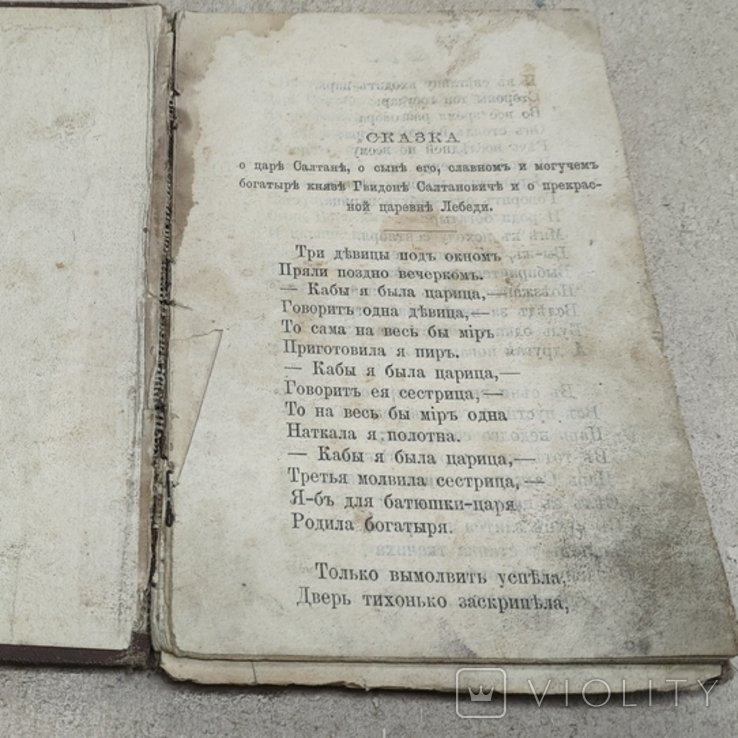 СКАЗКА
о царѣ Салтанѣ, о сынѣ его, славномъ и могучемъ
богатырѣ князѣ Гвидонѣ Салтановичѣ и о прекрас-
ной царевнѣ Лебеди.
Три дѣвицы подъ окномъ
Пряли поздно вечеркомъ.
— Кабы я была царица,—
Говоритъ одна дѣвица,—
То сама на весь бы міръ
Приготовила я пиръ.
— Кабы я была царица,—
Говоритъ ея сестрица,—
То на весь бы міръ одна
Наткала я полотна.
— Кабы я была царица,—
Третья молвила сестрица,—
Я-бъ для батюшки-царя
Родила богатыря.
Только вымолвить успѣла,
Дверь тихонько заскрипѣла,
VIOLITY